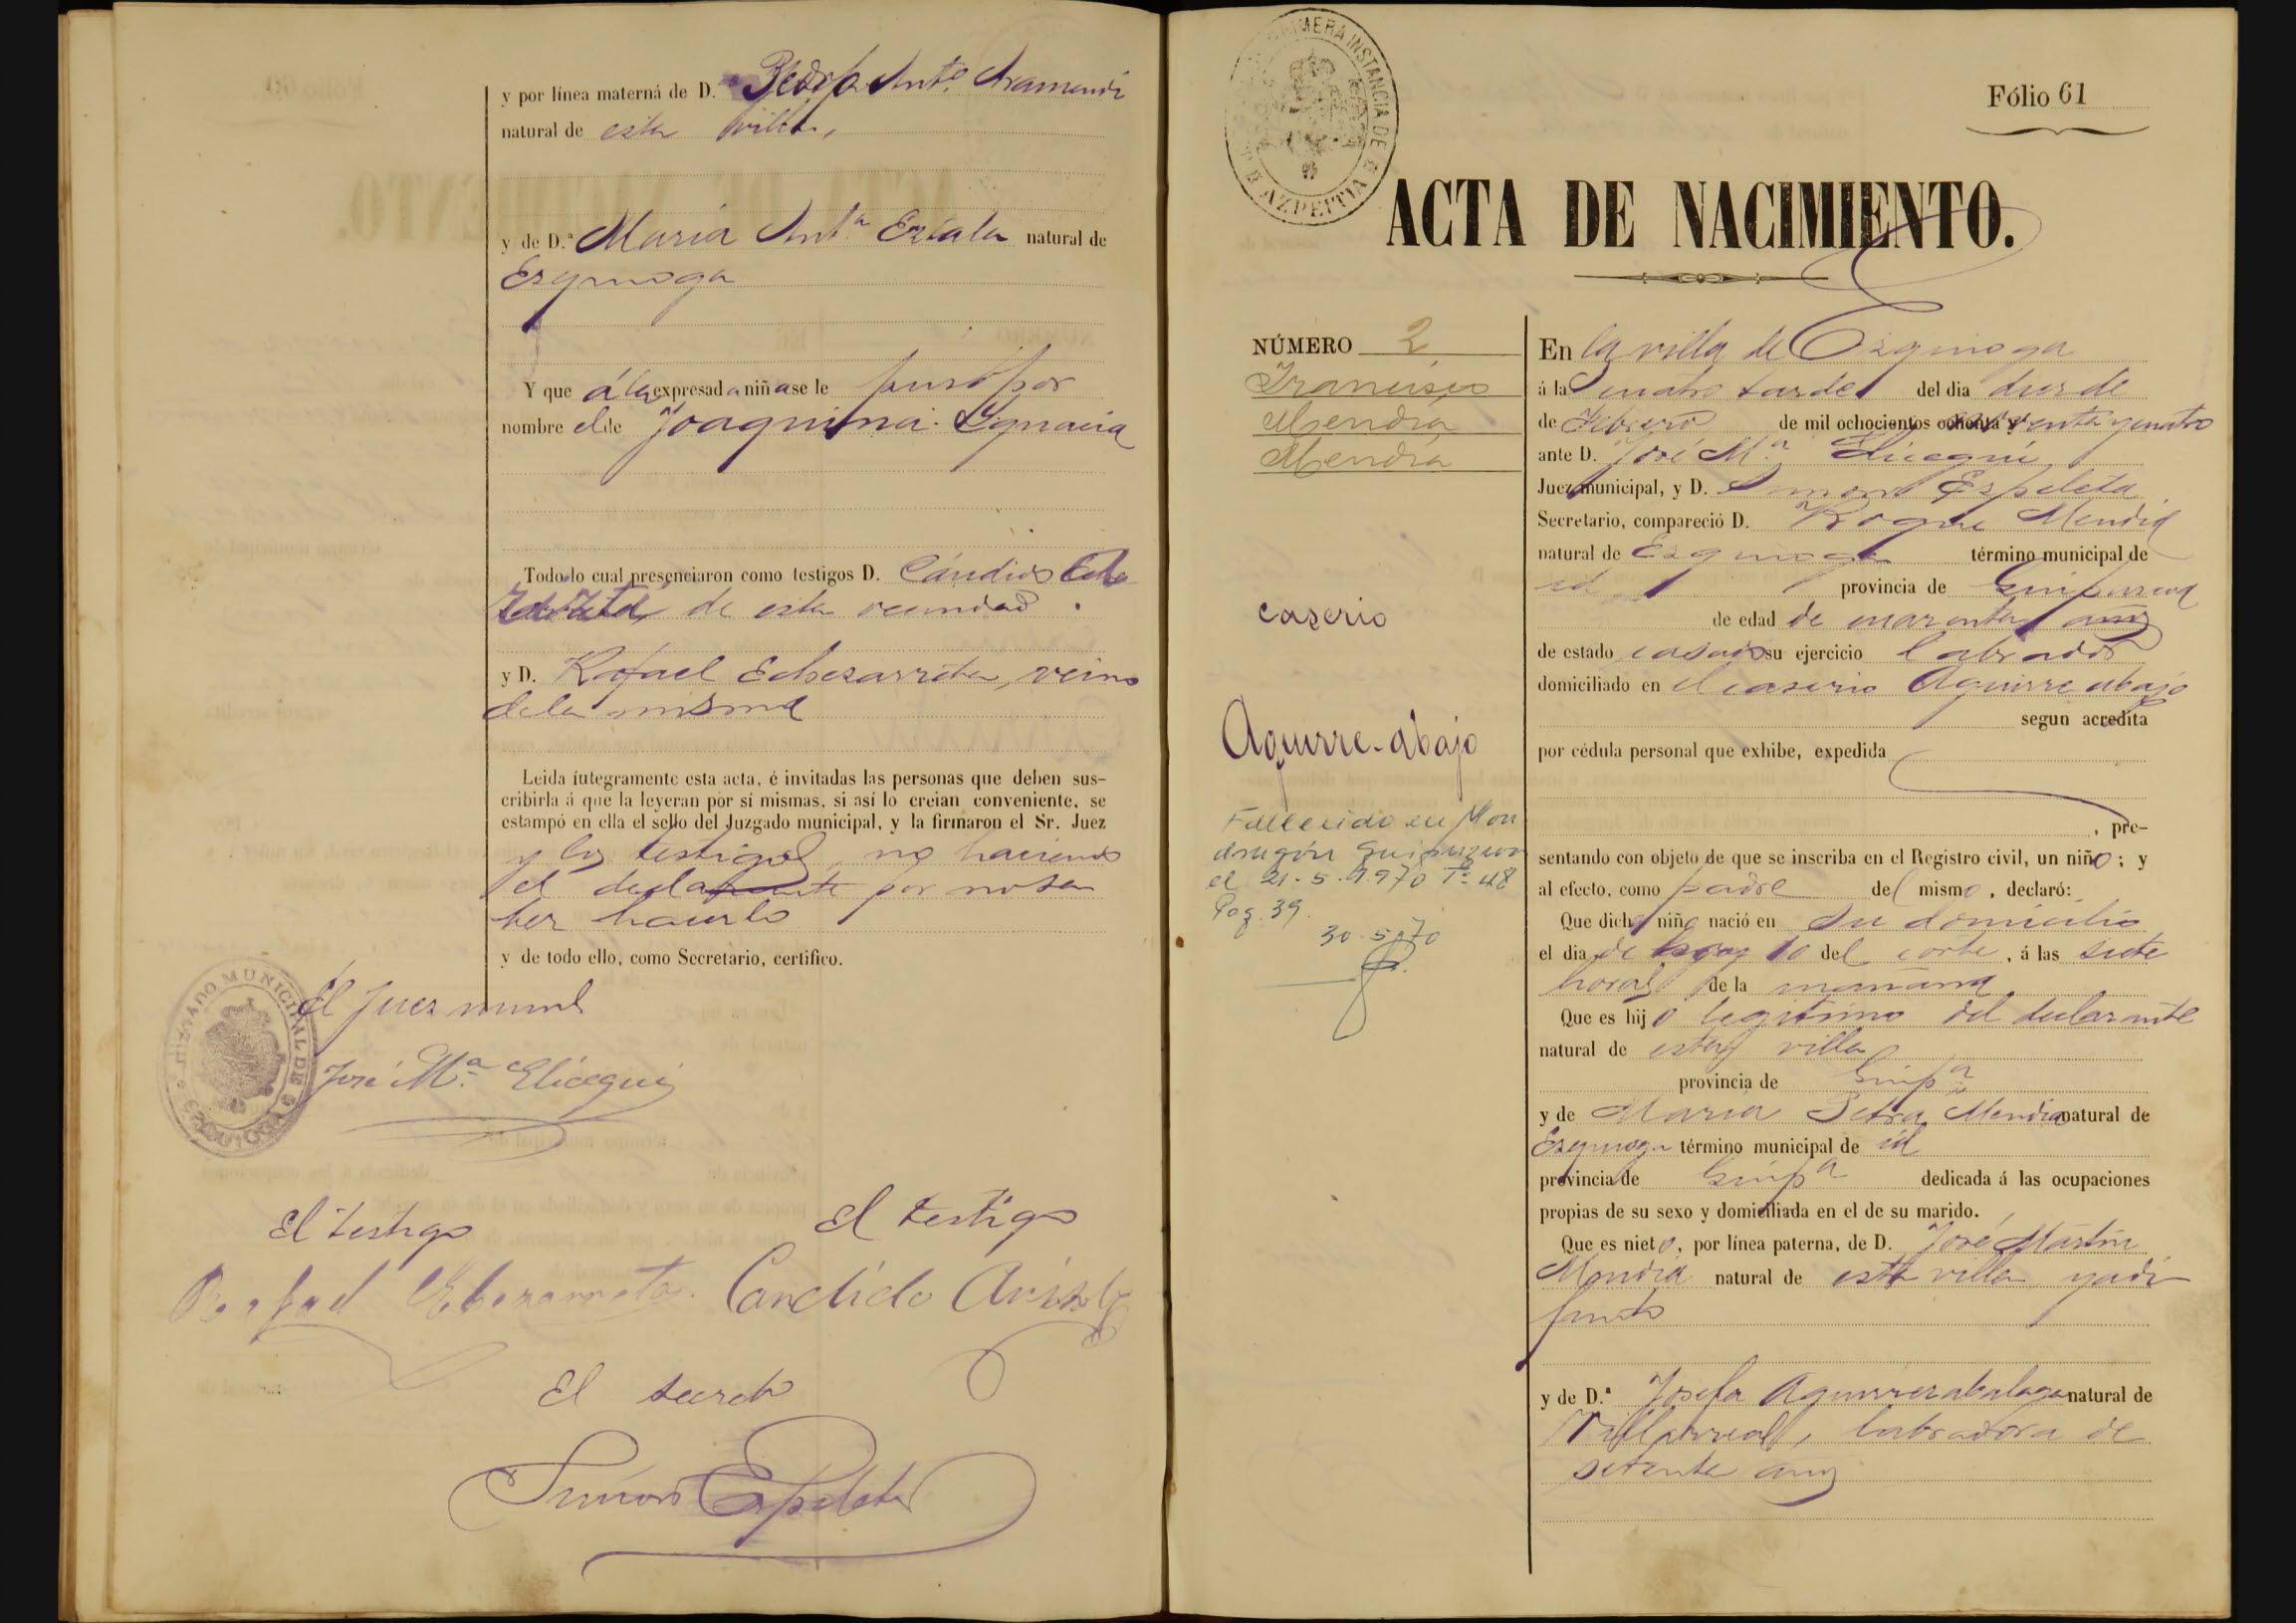 y por línea materna de D. Pedro Antº Aramendi
natural de esta villa,
y de D.ª María Antª Eztala natural de
Ezquioga
Y que á la expresada niña se le puso por
nombre el de Joaquina Ygnacia
Todo lo cual presenciaron como testigos D. Cándido
de esta vecindad.
y D. Rafael Echezarreta, vecino
de la misma
Leida íntegramente esta acta, é invitadas las personas que deben sus-
cribirla á que la leyeran por sí mismas, si así lo creian conveniente, se
estampó en ella el sello del Juzgado municipal, y la firmaron el Sr. Juez
y los testigos, no haciendo
el declarante por no sa
ber hacerlo
y de todo ello, como Secretario, certifico.
JUZGADO MUNICIPAL DE EZQUIOGA
El Juez munl
José Mª Elicegui
El testigo
El testigo
Rafael Echezarreta.
Candido
El Secreto
Simon Espeleta
PRIMERA INSTANCIA DE AZPEITIA
Fólio 61
ACTA DE NACIMIENTO.
NÚMERO 2
Francisco
Mendia
Mendia
caserio
Aguirre-abajo
Fallecido en Mon
dragón Guipuzcoa
el 21-5-1970 Tº 48
Pag. 39.
30-5-70
En la villa de Ezquioga
á la cuatro tarde del dia dos de
de Febrero de mil ochocientos noventa y cuatro
ante D. José Mª Elicegui
Juez municipal, y D. Simon Espeleta
Secretario, compareció D. Roque Mendia
natural de Ezquioga término municipal de
id provincia de Guipuzcoa
de edad de cuarenta años
de estado casado su ejercicio labrador
domiciliado en el caserio Aguirre abajo
segun acredita
por cédula personal que exhibe, expedida
, pre-
sentando con objeto de que se inscriba en el Registro civil, un niño; y
al efecto, como padre del mismo, declaró:
Que dicho niño nació en su domicilio
el dia de hoy del corte, á las siete
horas de la mañana
Que es hijo legitimo del declarante
natural de esta villa
provincia de Guipª
y de Maria Petra Mendia natural de
Ezquioga término municipal de id
provincia de Guipª dedicada á las ocupaciones
propias de su sexo y domiciliada en el de su marido.
Que es nieto, por línea paterna, de D. José Martin
Mendia natural de esta villa y adi
funto
y de D.ª Josefa Aguirrezabalaga natural de
Villarreal, labradora de
setenta años